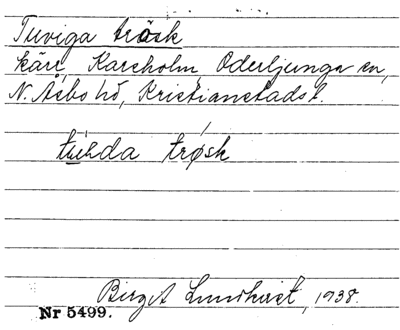 Tuviga träsk
kärr, Karsholm, Oderljunga sn,
N. Åsbo hd, Kristianstads l.
träsk
Birgit Lundkvist, 1938.
Nr 5499.